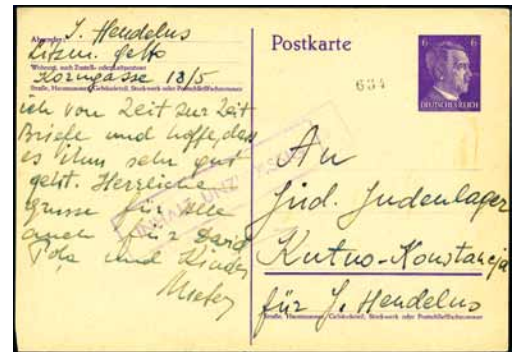 Absender: J. Hendelus
Litzm. Getto
Wohnort, auch Zustell- oder Leitpostamt
Korngasse 18/5
Straße, Hausnummer, Gebäudeteil, Stockwerk oder Postschließfachnummer
ich von Zeit zur Zeit
Briefe und hoffe, dass
es ihm sehr gut
geht. Herzliche
grusse für Alle
auch für David
Pola und Kinder
Postkarte
6 6
DEUTSCHES REICH
634
INHALT UNZ
An
Jüd. Judenlager
Kutno-Konstancja
für J. Hendelus
Straße, Hausnummer, Gebäudeteil, Stockwerk oder Postschließfachnummer